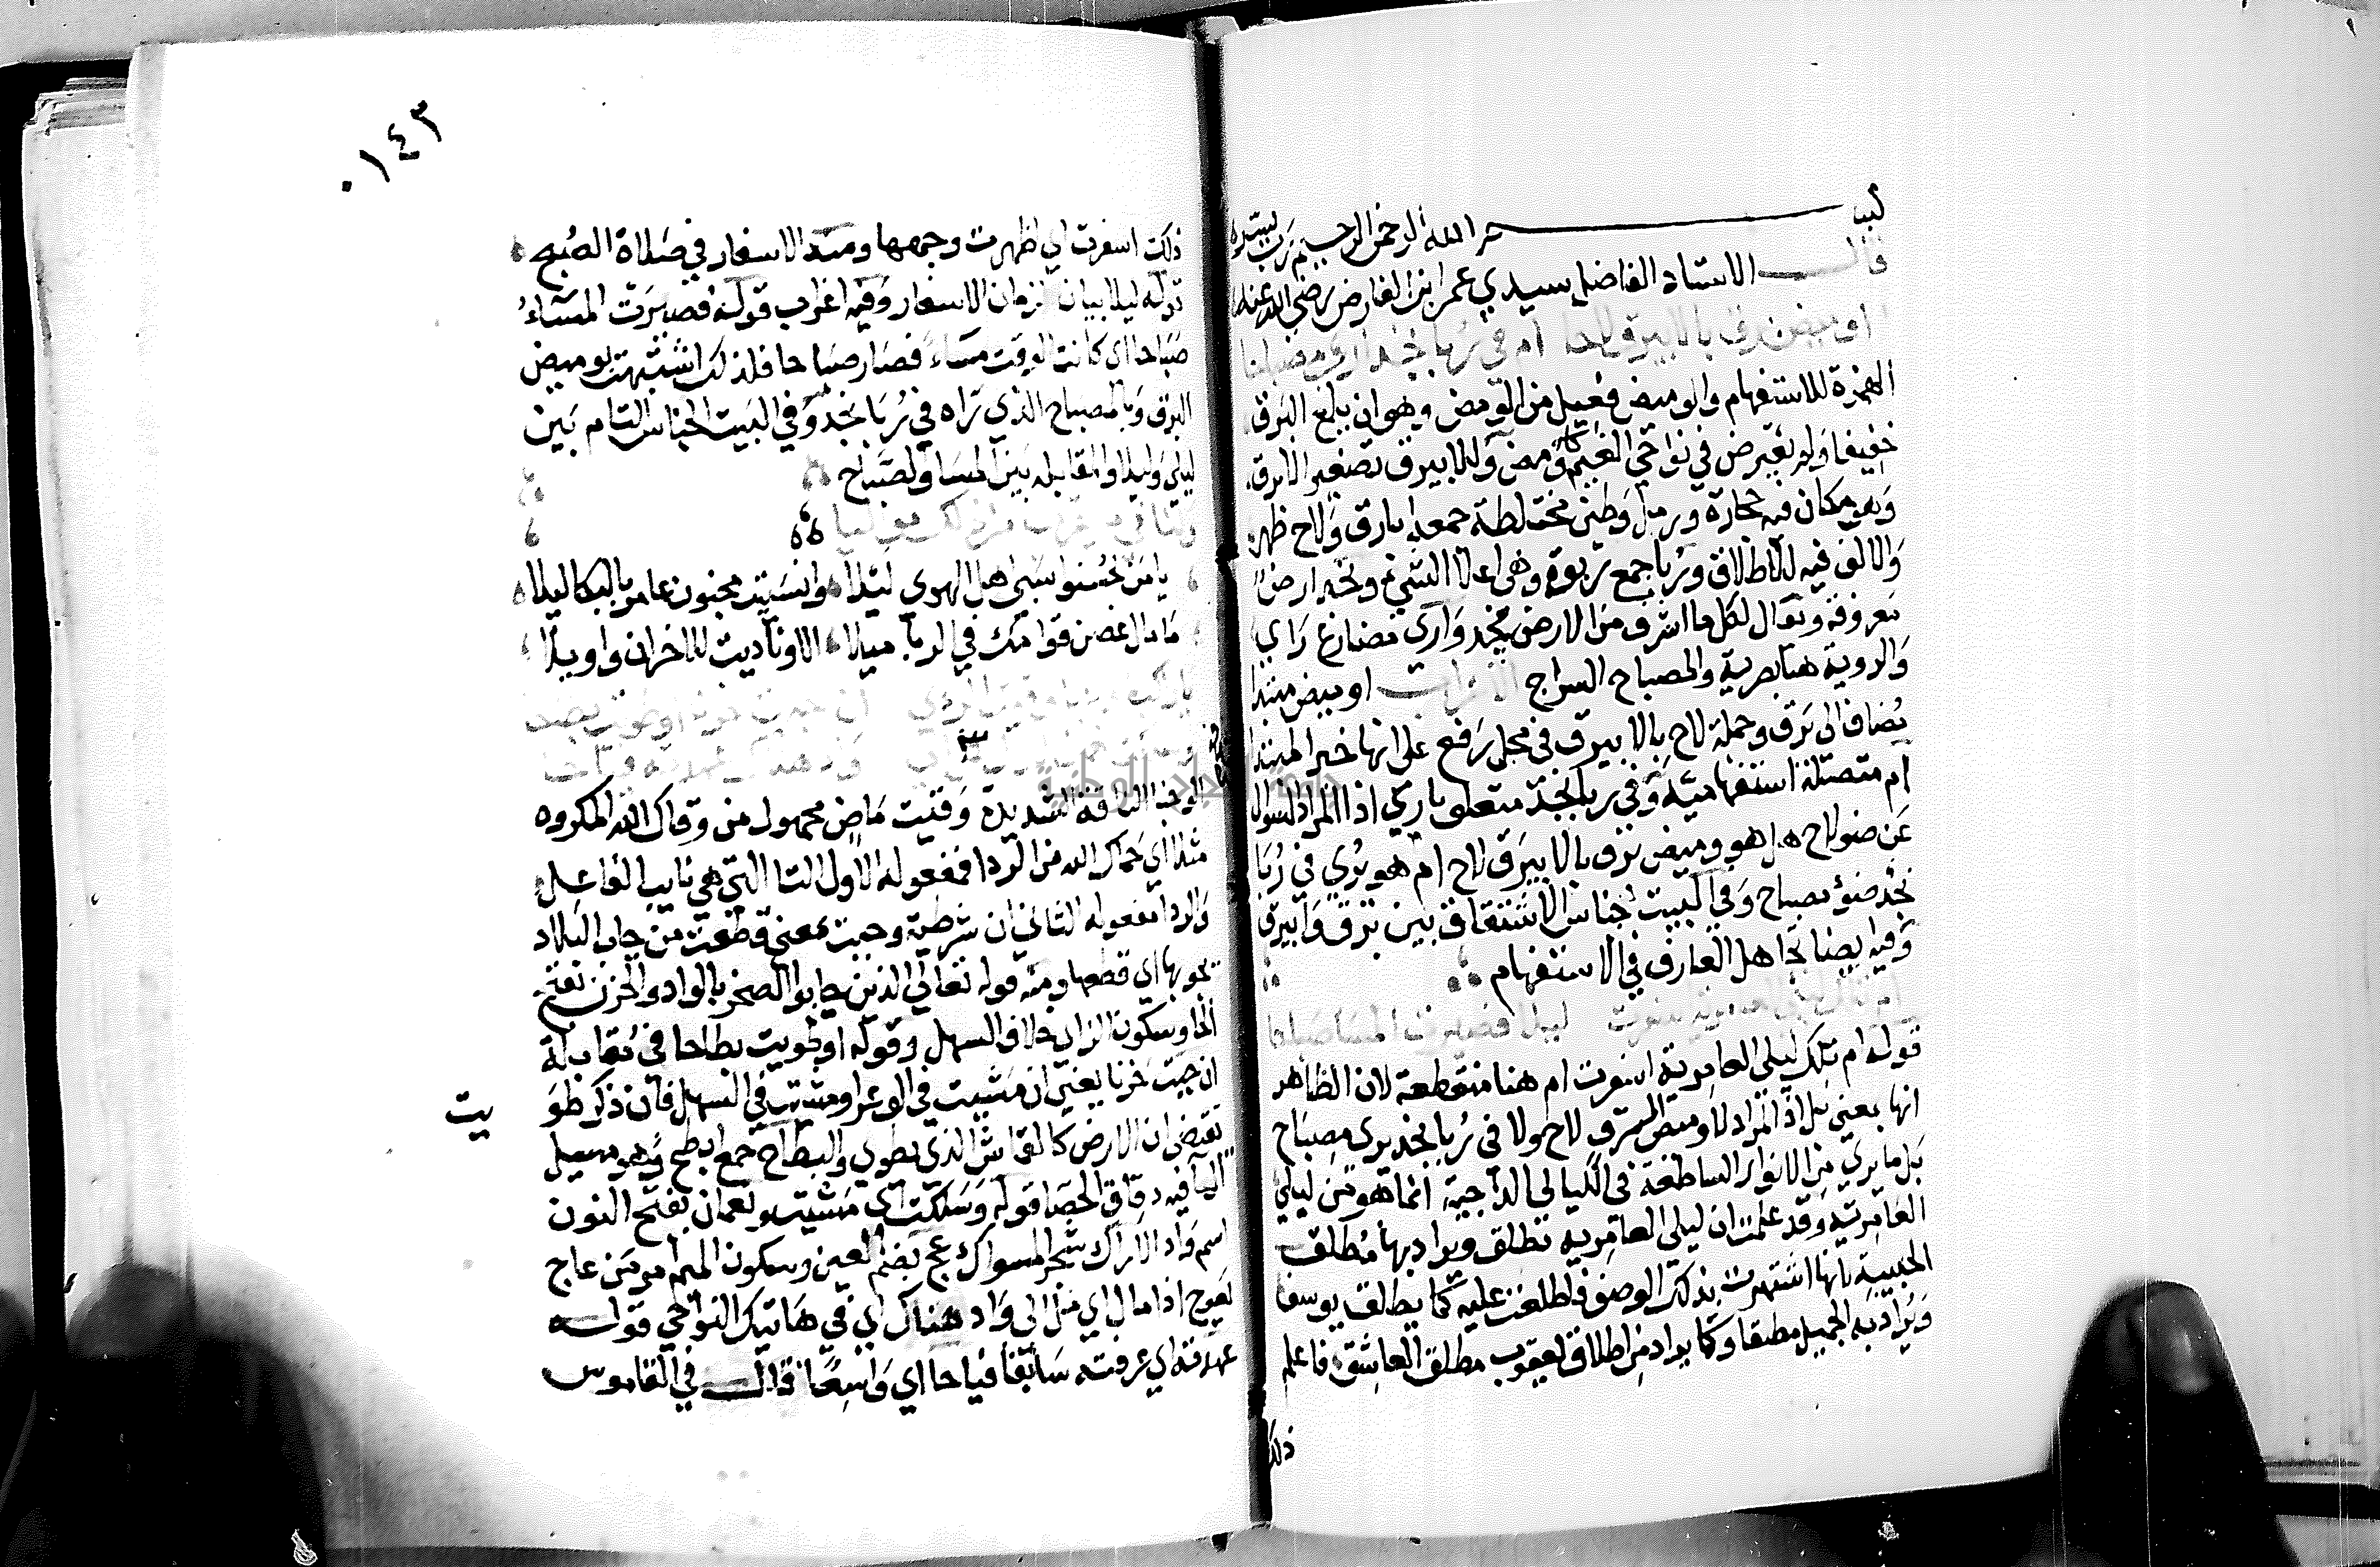 بسم الله الرحمن الرحيم رب يسر
قال الاستاد الفاضل سيدي عمر ابن الفارض رضي الله عنه
اوميض برق بالابيرق لاحا ام في ربا نجد اري مصباحا
الهمزة للاستفهام والوميض فعيل من الومض وهو ان يلمع البرق
خفيفا ولم يعترض في نواحي الغيم ومض والابيرق تصغير الابرق
وهو مكان فيه حجارة ورمل وطين مختلطة جمعه ابارق ولاح ظهر
والالف فيه للاطلاق وربا جمع ربوة وهي اعلا الشي ونجد ارض
معروفة ويقال لكل ما اشرف من الارض نجد واري مضارع راي
والروية هنا بصرية والمصباح السراج الاعراب اوميض مبتدا
يضاف الى برق وجملة لاح بالابيرق في محل رفع على انها خبر المبتدا
ام متصلة استفهامية وفي ربا نجد متعلق باري اذ المراد السوال
عن ضو لاح هل هو وميض برق بالابيرق لاح ام هو يري في ربا
نجد ضؤ مصباح وفي البيت جناس الاشتقاق بين برق وابيرق
وفيه ايضا تجاهل العارف في الاستفهام
ام تلك ليلى العامرية اسفرت ليلا فصيرت المسا صباحا
قوله ام تلك ليلى العامرية اسفرت ام هنا منقطعة لان الظاهر
انها بمعنى بل اذ المراد لا وميض البرق لاح ولا في ربا نجد يرى مصباح
بل ما يري من الانوار الساطعة في الليالي الداجية انما هو من ليلي
العامرية وقد علمت ان ليلى العامرية تطلق ويراد بها مطلق
الحبيبة لانها اشتهرت بذلك الوصف فاطلقت عليه كما يطلق يوسف
ويراد به الجميل مطلقا وكما يراد من اطلاق يعقوب مطلق العاشق فاعلم
ذلك
٠١٤٣
ذلك اسفرت اي اظهرت وجهها ومنه الاسفار في صلاة الصبح
قوله ليلا بيان لزمان الاسفار وفيه اغراب قوله فصيرت المساء
صباحا اي كانت الوقت مساء فصار صباحا فلذلك اشتبهت بوميض
البرق وبالمصباح الذي تراه في ربا نجد وفي البيت الجناس التام بين
ليلى وليلا والمقابلة بين المسا والصباح
يا من بحسنوا سبى اهل الهوي ليلا وانسيت مجنون عامر بالبكا ليلا
ما مال غصن قوامك في الربا ميلا الا وناديت للاخزان واويلا
يا راكب الوجنا وقيت الردي ان جبت حزنا او طويت بطاحا
الوجنا الناقة الشديدة وقيت ماض مجهول من وقاك الله المكروه
مثلا اي حماك الله من الردا فمفعوله الاول التا التي هي نايب الفاعل
والردا مفعوله الثاني ان شرطية وجبت بمعنى قطعت من جاب البلاد
يجوبها اي قطعها ومنه قوله تعالى الذين جابوا الصخر بالواد والحزن بفتح
الحا وسكون الزاي خلاف السهل وقوله او طويت بطاحا في مقابلة
ان جبت حزنا يعني ان مشيت في الوعر او مشيت في السهل فان ذكر طو
يت
يقتضي ان الارض كالقماش الذي يطوي والبطاح جمع ابطح وهو مسيل
الما فيه دقاق الحصا قوله وسلكت اي مشيت ونعمان بفتح النون
اسم واد الاراك شجر المسواك عج بضم العين وسكون الميم هو من عاج
يعوج اذا مال اي مل الى واد هناك اي في هاتيك النواحي قوله
عهدته اي عرفته سابقا فياحا اي واسعا قال في القاموس